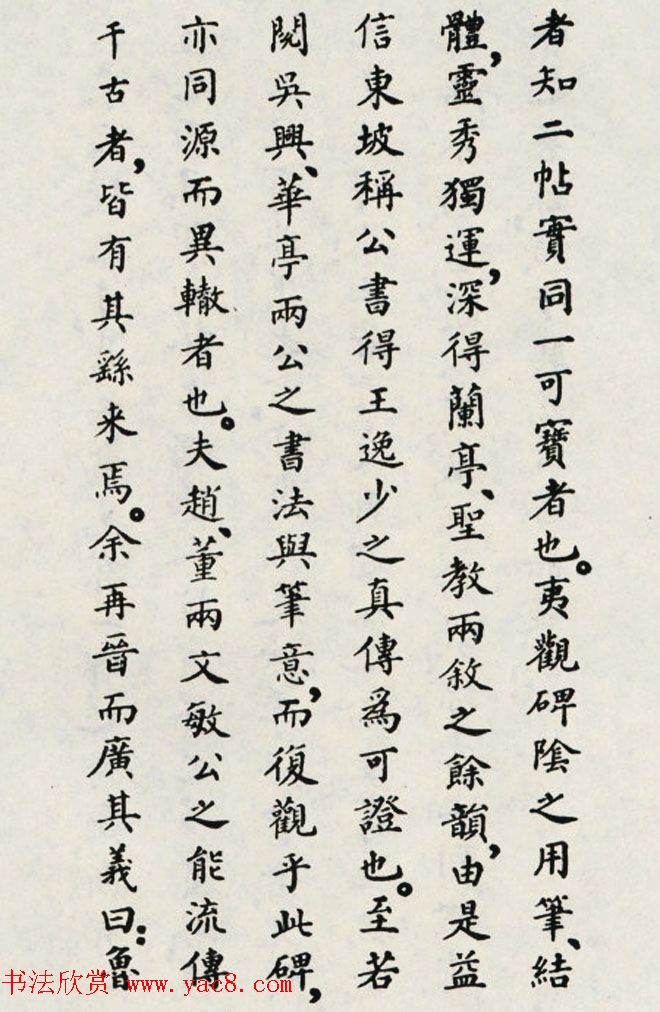 者知二帖實同一可寶者也。夷觀碑陰之用筆、結
體，靈秀獨運，深得蘭亭、聖教兩敘之餘韻，由是益
信東坡稱公書得王逸少之真傳爲可證也。至若
閱吳興、華亭兩公之書法與筆意，而復觀乎此碑，
亦同源而異轍者也。夫趙、董兩文敏公之能流傳
千古者，皆有其繇来焉。余再晉而廣其義曰：魯
书法欣赏 www.yac8.com